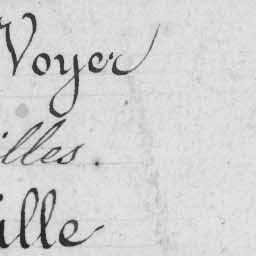 Voyer
illes.
ille